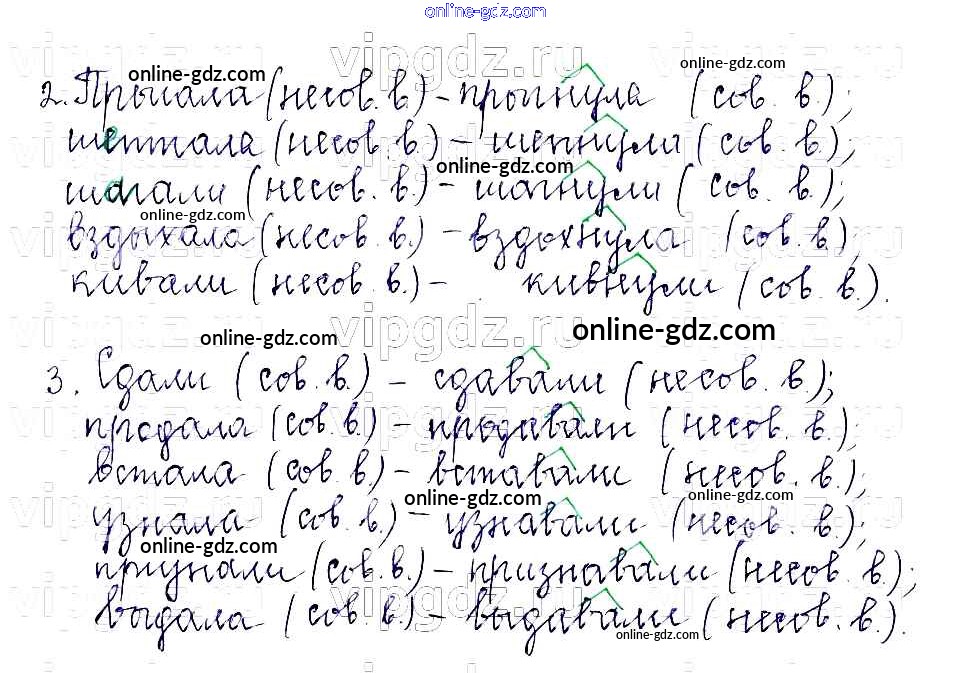 online-gdz.com
vipgdz.ru vipgdz.ru vipgdz.ru
online-gdz.com online-gdz.com
2. Прыгала (несов. в.) – прыгнула (сов. в.);
шептала (несов. в.) – шепнула (сов. в.);
online-gdz.com
шагали (несов. в.) – шагнули (сов. в.);
online-gdz.com
вздыхала (несов. в.) – вздохнула (сов. в.);
кивали (несов. в.) – кивнули (сов. в.).
vipgdz.ru vipgdz.ru vipgdz.ru
online-gdz.com online-gdz.com
3. Сдали (сов. в.) – сдавали (несов. в.);
продала (сов. в.) – продавали (несов. в.);
встала (сов. в.) – вставали (несов. в.);
online-gdz.com online-gdz.com
vipgdz.ru vipgdz.ru vipgdz.ru
узнала (сов. в.) – узнавали (несов. в.);
online-gdz.com
признали (сов. в.) – признавали (несов. в.);
vipgdz.ru vipgdz.ru vipgdz.ru
выдала (сов. в.) – выдавали (несов. в.).
online-gdz.com